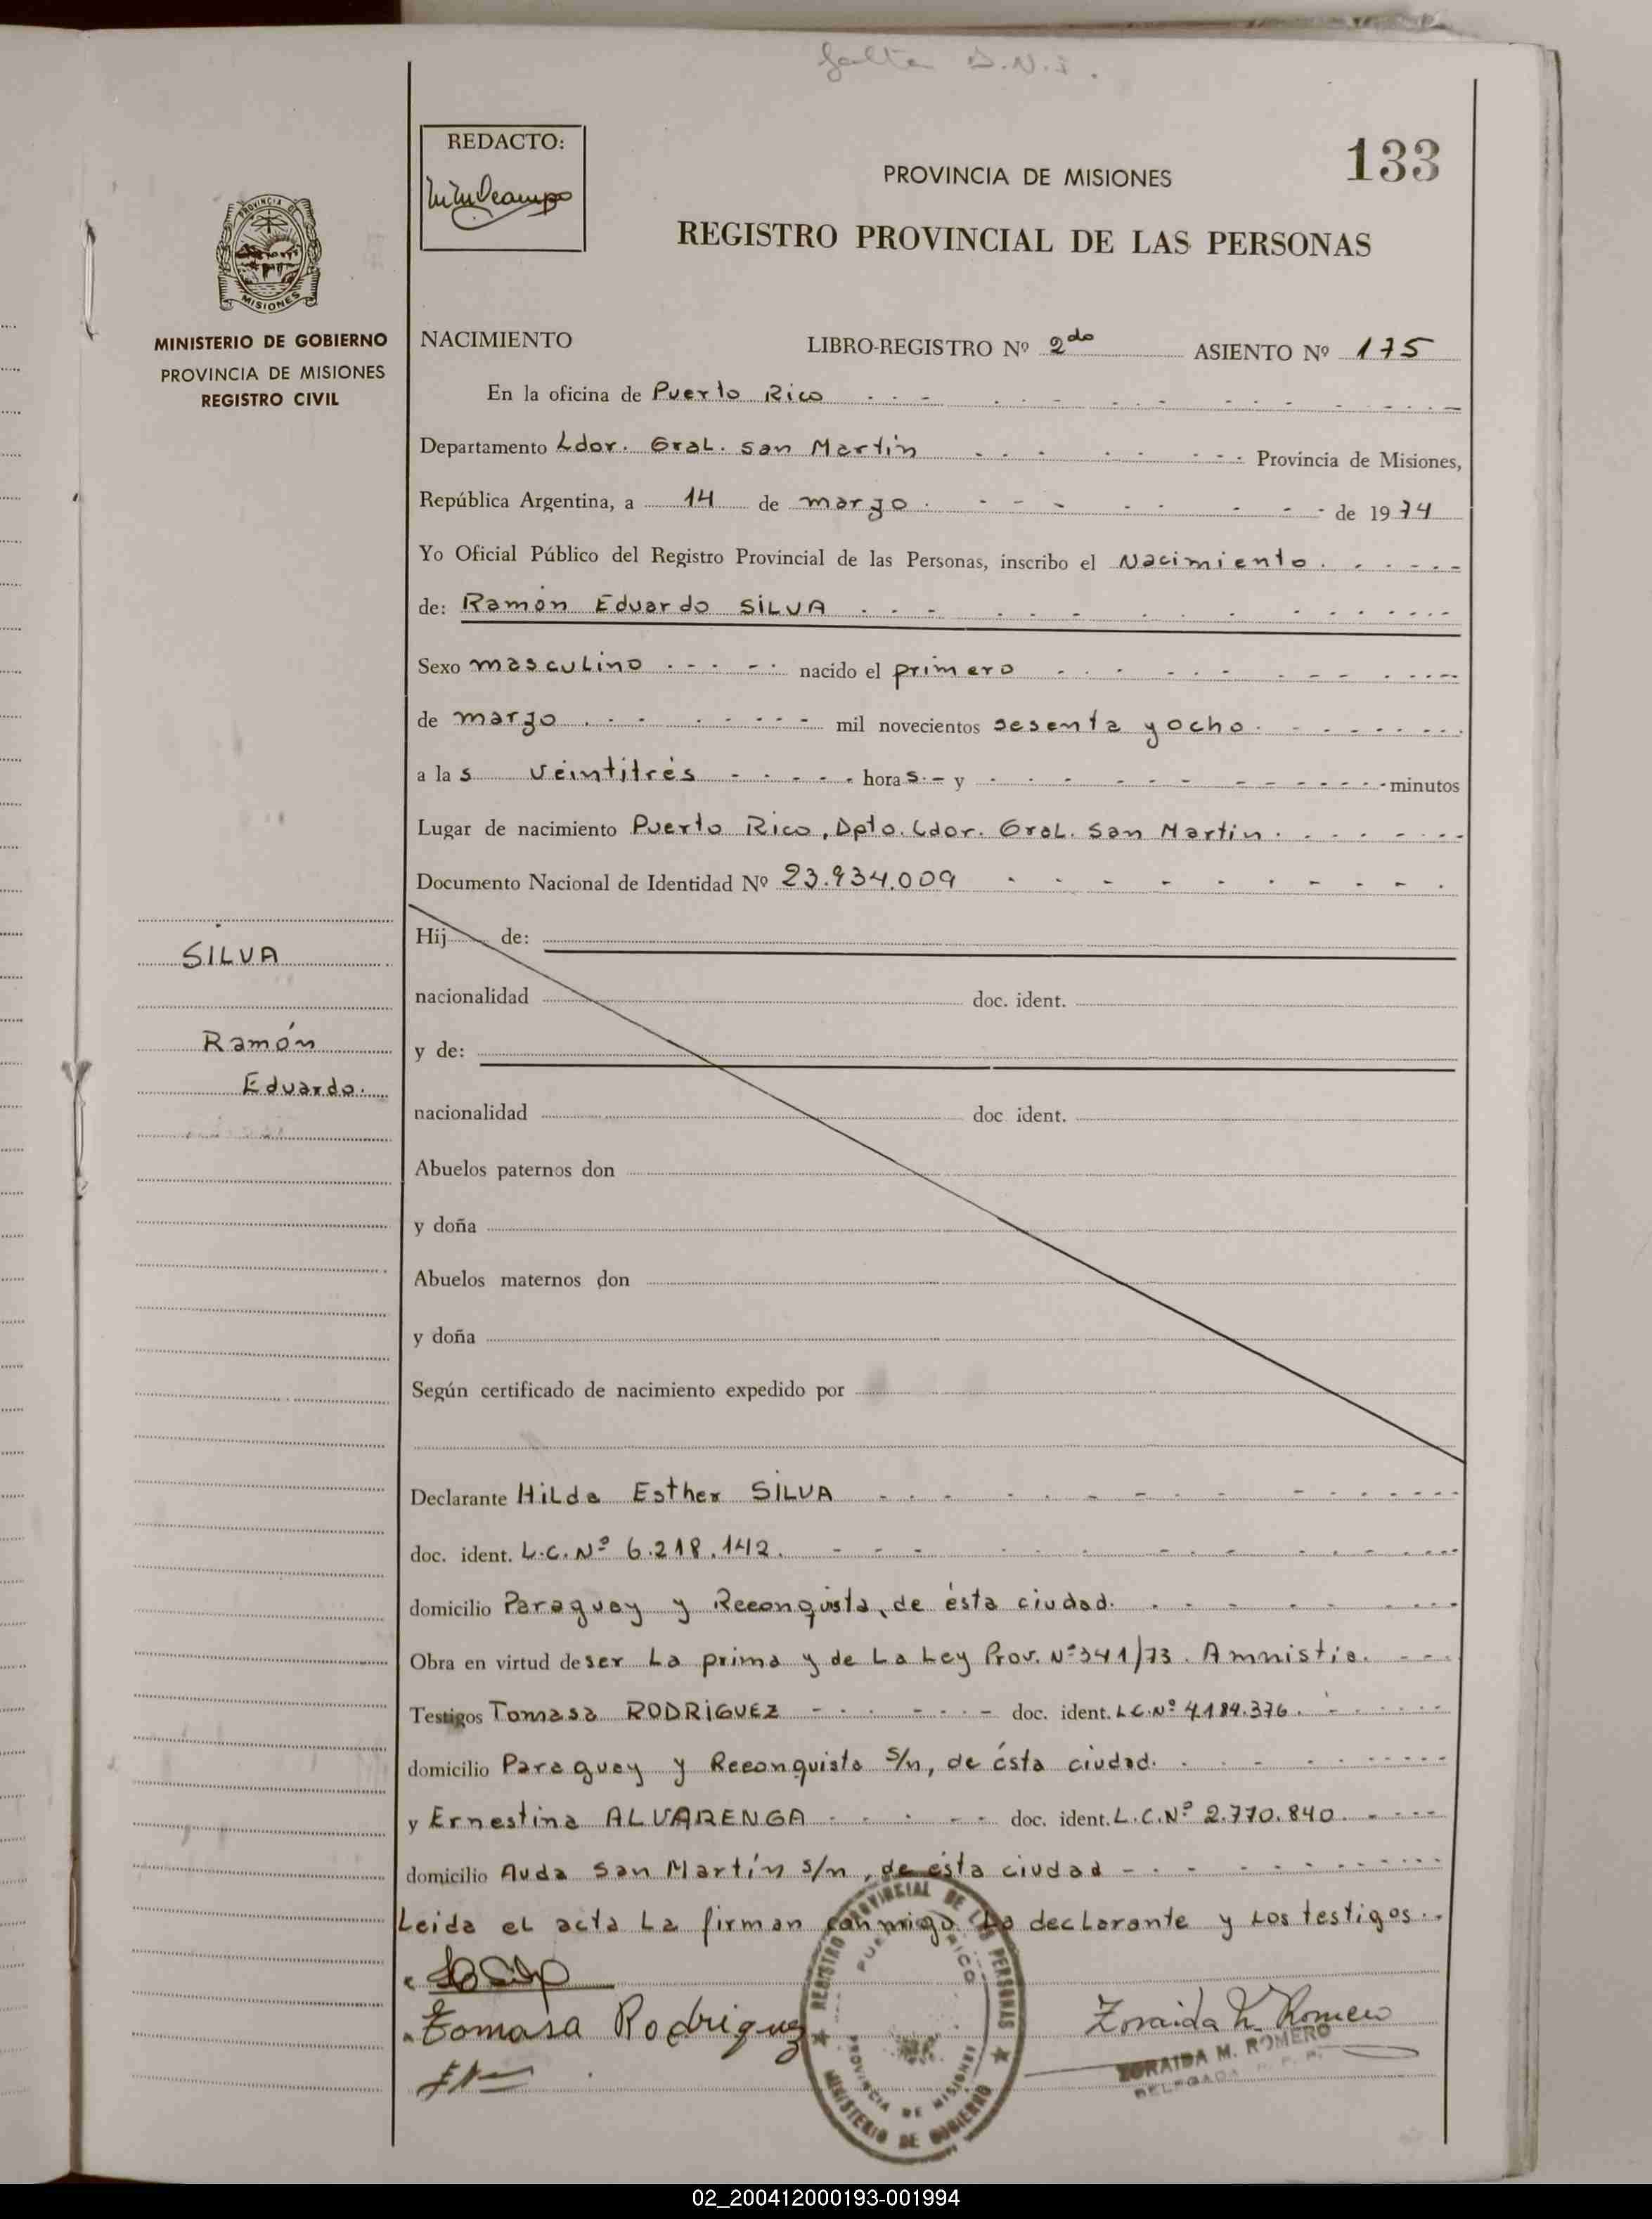 Falta D.N.I.
REDACTO:
133
PROVINCIA DE MISIONES
REGISTRO PROVINCIAL DE LAS PERSONAS
PROVINCIA DE
MISIONES
MINISTERIO DE GOBIERNO
PROVINCIA DE MISIONES
REGISTRO CIVIL
NACIMIENTO LIBRO-REGISTRO Nº 2do ASIENTO Nº 175
En la oficina de Puerto Rico
Departamento Ldor. Gral. San Martín Provincia de Misiones,
República Argentina, a 14 de marzo de 1974
Yo Oficial Público del Registro Provincial de las Personas, inscribo el Nacimiento.
de: Ramón Eduardo SILVA
Sexo masculino nacido el primero
de marzo mil novecientos sesenta y ocho
a las veintitrés horas.- y minutos
Lugar de nacimiento Puerto Rico, Dpto. Ldor. Gral. San Martín.
Documento Nacional de Identidad Nº 23.934.009
SILVA
Ramón
Eduardo.
Hij de:
nacionalidad doc. ident.
y de:
nacionalidad doc ident.
Abuelos paternos don
y doña
Abuelos maternos don
y doña
Según certificado de nacimiento expedido por
Declarante Hilda Esther SILVA
doc. ident. L.C. Nº 6.218.142.
domicilio Paraguay y Reconquista, de ésta ciudad.
Obra en virtud de ser la prima y de la Ley Prov. Nº 341/73. Amnistia.
Testigos Tomasa RODRIGUEZ doc. ident. L.C. Nº 4.184.376.
domicilio Paraguay y Reconquista s/n, de ésta ciudad.
y Ernestina ALVARENGA doc. ident. L.C. Nº 2.770.840.
domicilio Avda San Martín s/n, de ésta ciudad
Leida el acta la firman conmigo la declarante y los testigos.
Tomasa Rodriguez
Zoraida M. Romero
ZORAIDA M. ROMERO
DELEGADA R. P. P.
REGISTRO PROVINCIAL DE LAS PERSONAS
PUERTO RICO
PROVINCIA DE MISIONES
MINISTERIO DE GOBIERNO
02_200412000193-001994